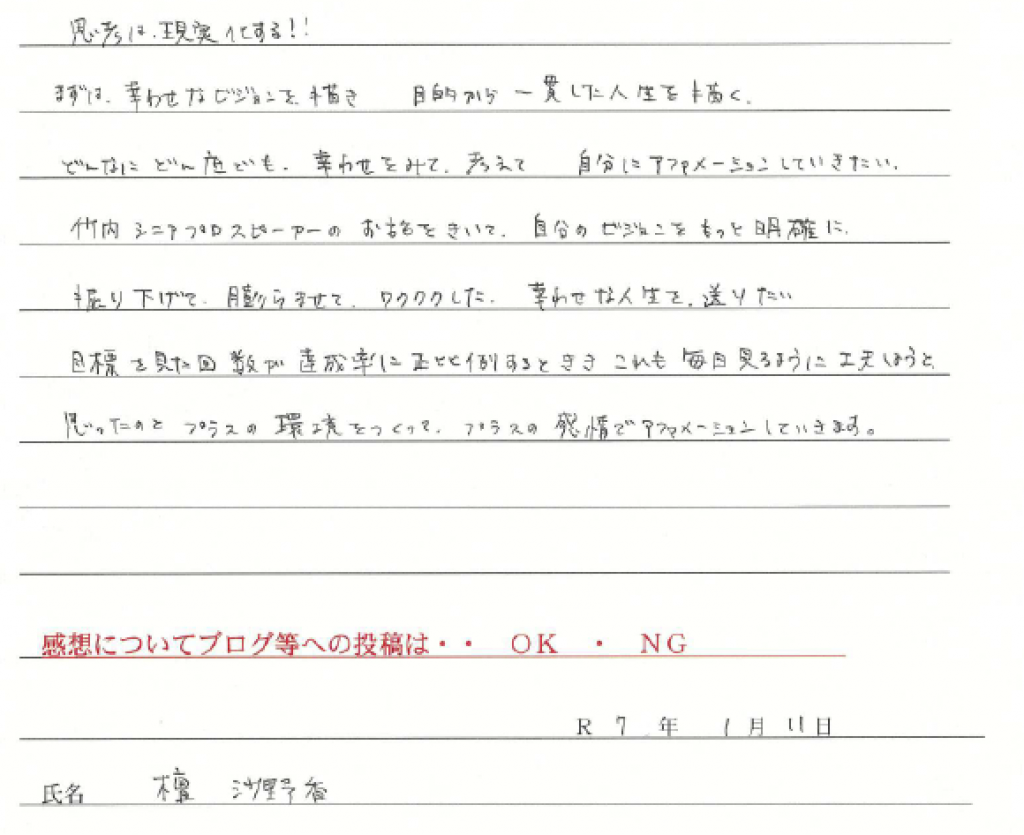 思考は、現実化する!!
まずは、幸わせなビジョンを、描き　目的から一貫した人生を描く、
どんなにどん底でも、幸わせをみて、考えて　自分にアファメーションしていきたい、
竹内シニアプロスピーカーのお話をきいて、自分のビジョンをもっと明確に、
掘り下げて、膨らませて、ワクワクした、幸わせな人生を、送りたい
目標を見た回数が達成率に正比例するときき これも毎日見るように工夫しようと、
思ったのとプラスの環境をつくって、プラスの感情でアファメーションしていきます。
感想についてブログ等への投稿は・・　OK　・　NG
R 7 年 1 月 11 日
氏名　檀 沙野香